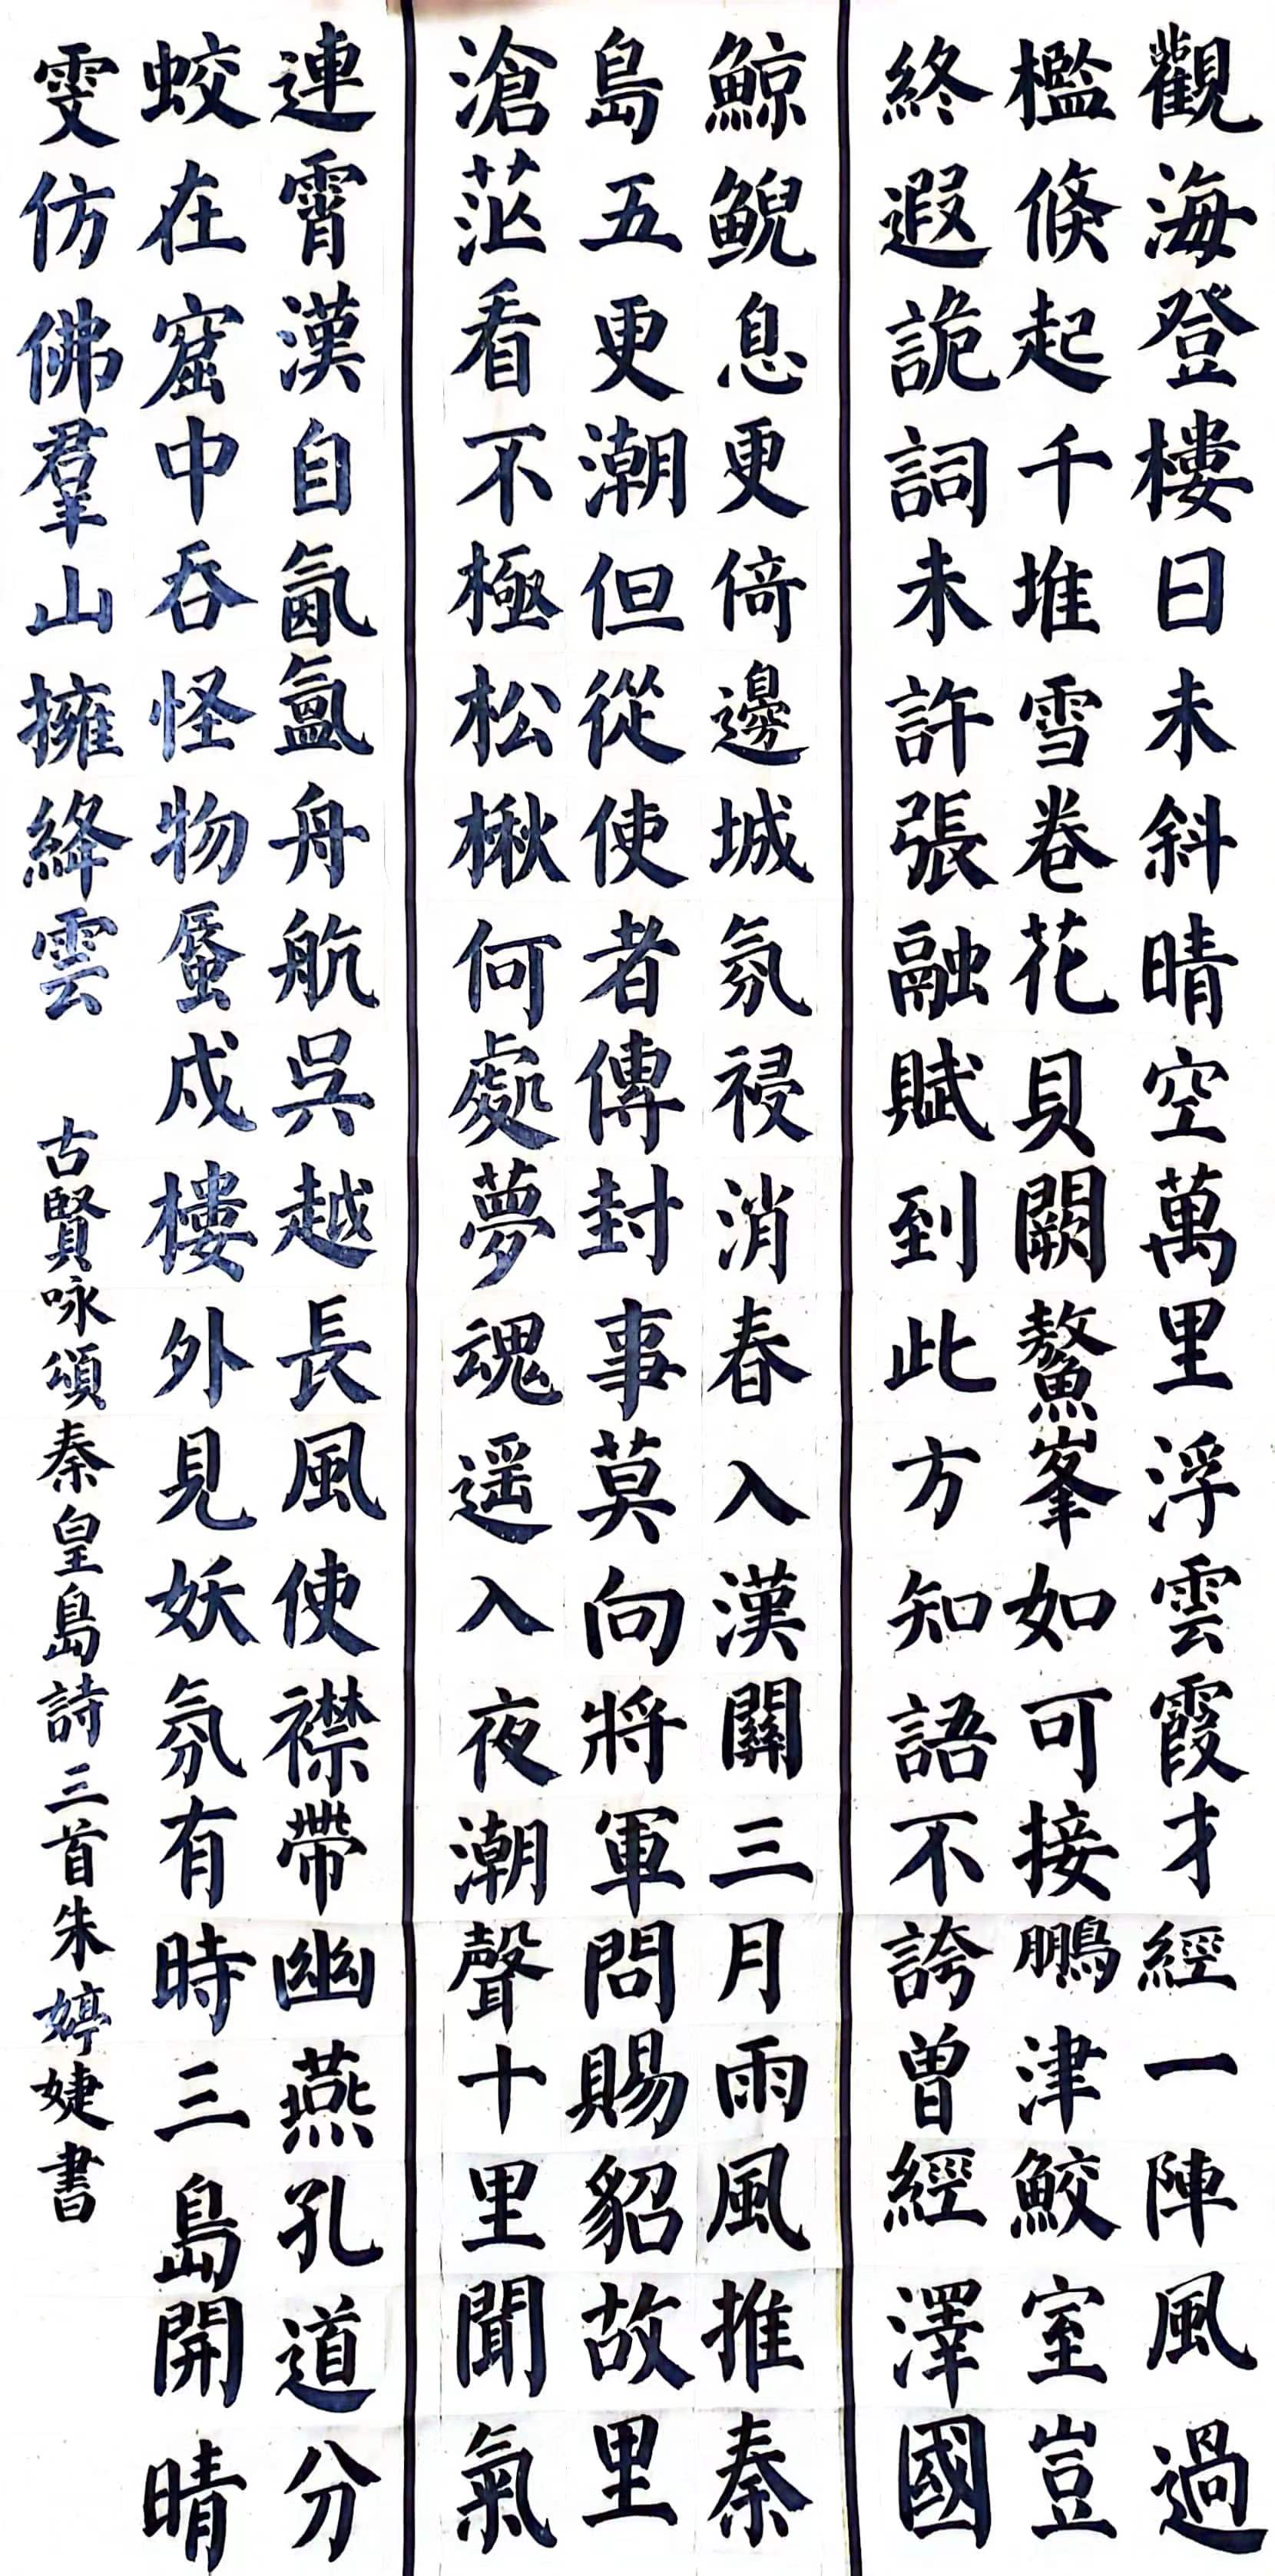 觀海登樓日未斜晴空萬里浮雲霞才經一陣風過
檻倏起千堆雪卷花貝闕鰲峯如可接鵬津鮫室豈
終遐詭詞未許張融賦到此方知語不誇曾經澤國
鯨鯢息更倚邊城氛祲消春入漢關三月雨風推秦
島五更潮但從使者傳封事莫向將軍問賜貂故里
滄茫看不極松楸何處夢魂遥入夜潮聲十里聞氣
連霄漢自氤氳舟航呉越長風使襟帶幽燕孔道分
蛟在窟中吞怪物蜃戍樓外見妖氛有時三島開晴
雯仿佛羣山擁絳雲
古賢咏頌秦皇島詩三首朱婷婕書